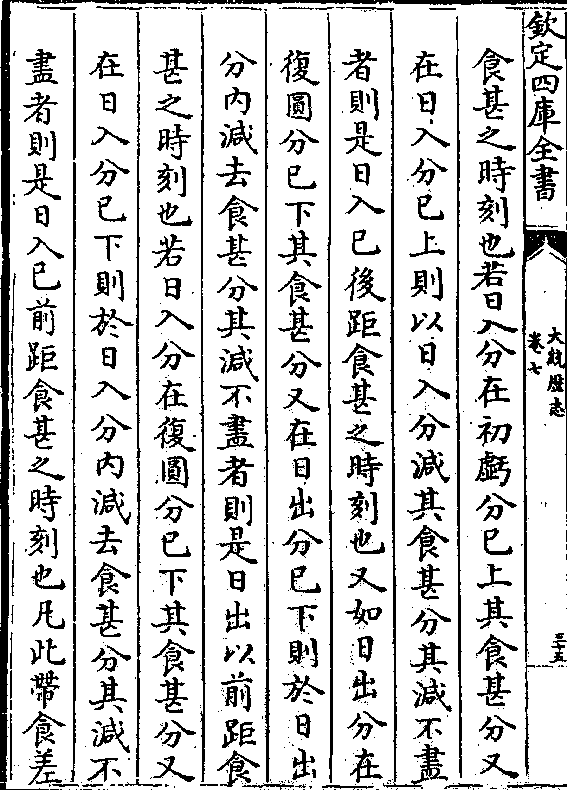 欽定四庫全書
大統歷志
卷七
三十五
食甚之時刻也若日入分在初虧分已上其食甚分又
在日入分已上則以日入分減其食甚分其減不盡
者則是日入已後距食甚之時刻也又如日出分在
復圓分已下其食甚分又在日出分已下則於日出
分内減去食甚分其減不盡者則是日出以前距食
甚之時刻也若日入分在復圓分已下其食甚分又
在日入分已下則於日入分内減去食甚分其減不
盡者則是日入已前距食甚之時刻也凡此帶食差